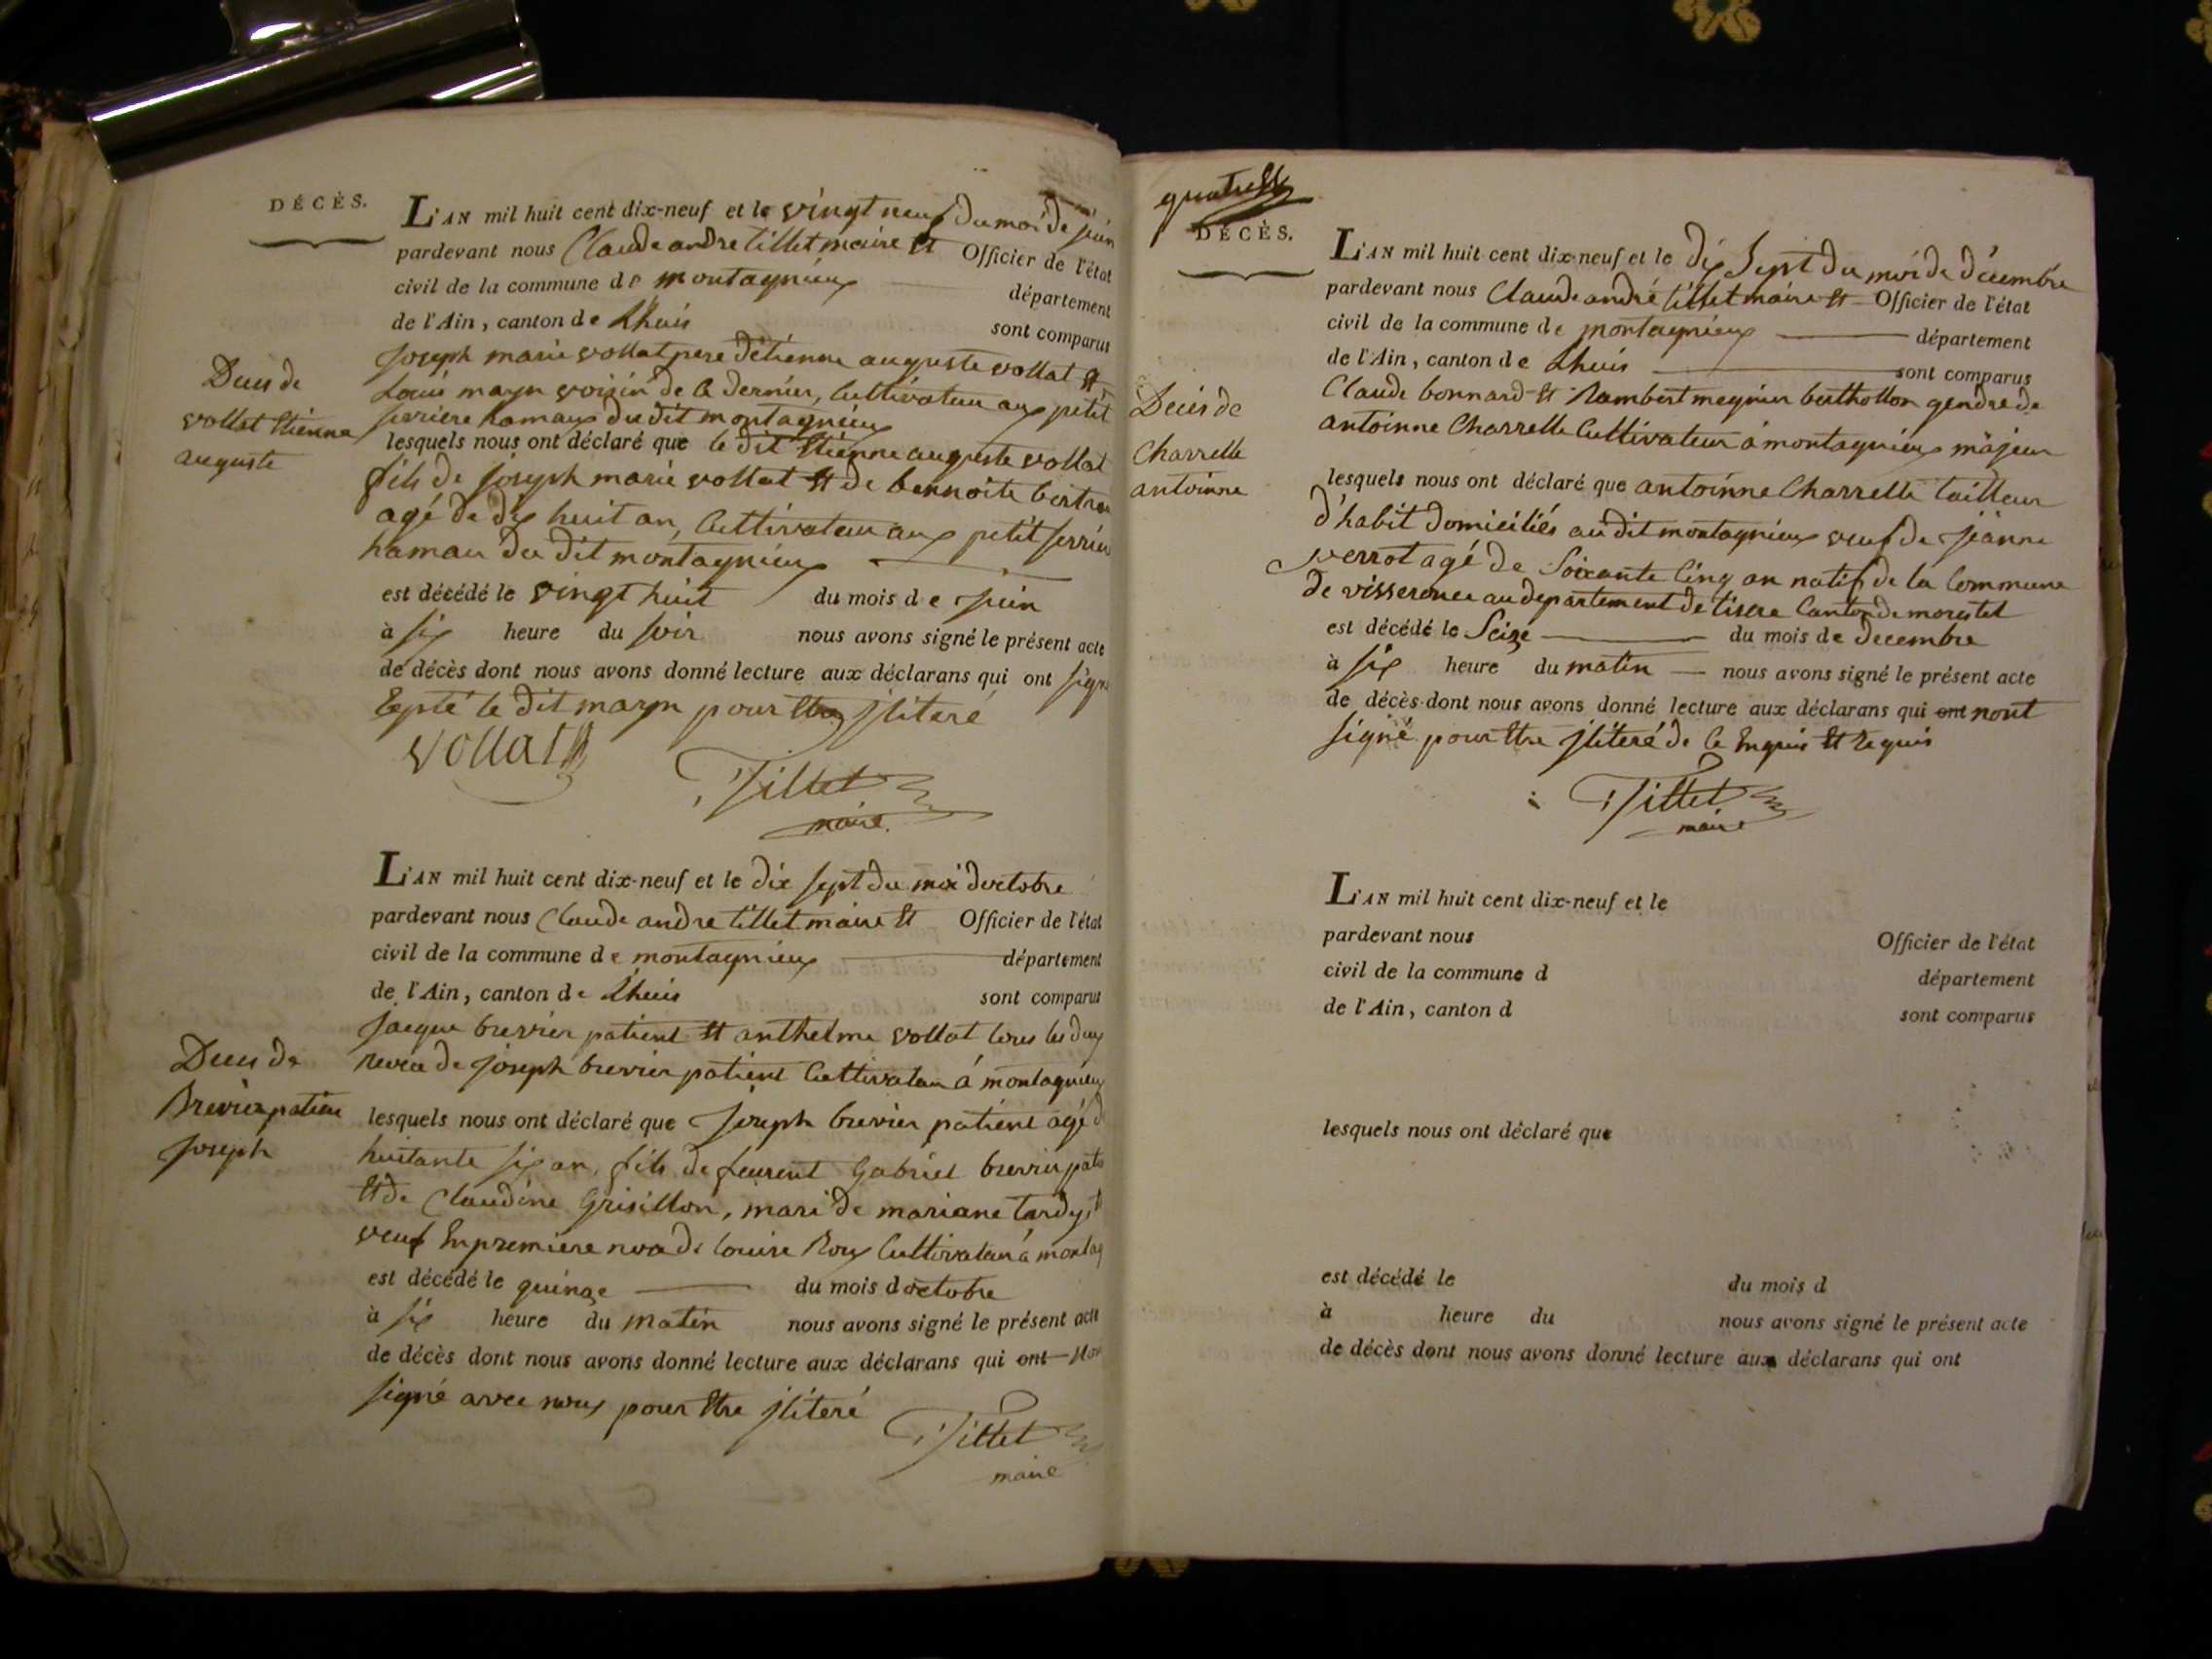 DÉCÈS.
L'AN mil huit cent dix-neuf et le vingt neuf du moi de juin
pardevant nous Claude andre tillet maire et Officier de l'état
civil de la commune de montagnieux département
de l'Ain, canton de Lhuis sont comparus
joseph marie vollat pere detienne auguste vollat et
Louis mayn voisin de ce dernier, Cultivateur au petit
serriere hamaux du dit montagnieux
Deces de
vollat Etienne
auguste
lesquels nous ont déclaré que le dit Etienne auguste vollat
fils de joseph marie vollat et de bennoite
agé de dix huit an, Cultivateur aux petit
hamau du dit montagnieux
est décédé le vingt huit du mois de juin
à six heure du soir nous avons signé le présent acte
de décès dont nous avons donné lecture aux déclarans qui ont signé
le dit mayn pour Etre jliteré
vollat
Tillet
maire
L'AN mil huit cent dix-neuf et le dix sept du moi doctobre
pardevant nous Claude andre tillet maire et Officier de l'état
civil de la commune de montagnieux département
de l'Ain, canton de Lhuis sont comparus
jacque brevier patient et anthelme vollat tous les deux
neveu de joseph brevier patient Cultivateur á montagnieux
Deces de
Brevier patient
joseph
lesquels nous ont déclaré que joseph brevier patient agé de
huitante six an, fils de Gabriel brevier
et de Claudine Grisillon, mari de mariane tardy, et
veuf En premiere de louise Roux Cultivateur á
est décédé le quinze du mois doctobre
à six heure du matin nous avons signé le présent acte
de décès dont nous avons donné lecture aux déclarans qui ont
signé avec nous pour Etre jliteré
Tillet
maire
DÉCÈS.
L'AN mil huit cent dix-neuf et le dix Sept du moi de décembre
pardevant nous Claude andré tillet maire et Officier de l'état
civil de la commune de montagnieux département
de l'Ain, canton de Lhuis sont comparus
Claude bonnard et Rambert meynier berthollon gendre de
antoinne Charrelle Cultivateur á montagnieux majeur
Deces de
Charrelle
antoinne
lesquels nous ont déclaré que antoinne Charrelle tailleur
d'habit domiciliés au dit montagnieux veuf de jeanne
verrot agé de Soixante Cinq an natif de la Commune
de au departement de lisere Canton de morestel
est décédé le Seize du mois de decembre
à six heure du matin nous avons signé le présent acte
de décès dont nous avons donné lecture aux déclarans qui ont nont
signé pour Etre jliteré de Ce Enquis et Requis
Tillet
maire
L'AN mil huit cent dix-neuf et le
pardevant nous Officier de l'état
civil de la commune d département
de l'Ain, canton d sont comparus
lesquels nous ont déclaré que
est décédé le du mois d
à heure du nous avons signé le présent acte
de décès dont nous avons donné lecture aux déclarans qui ont